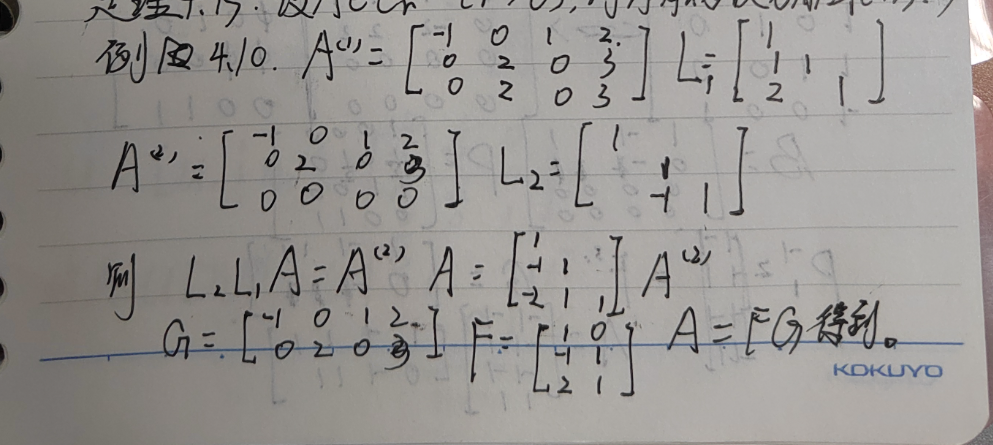 定理4.13. 设A∈C
例 4.10. A⁽¹⁾ = [-1 0 1 2; 0 2 0 3; 0 2 0 3] L₁ = [1; 1 1; 2 1]
A⁽²⁾ = [-1 0 1 2; 0 2 0 3; 0 0 0 0] L₂ = [1; 1; -1 1]
则 L₂L₁A = A⁽²⁾ A = [1; -1 1; -2 1 1] A⁽²⁾
G = [-1 0 1 2; 0 2 0 3] F = [1 0; -1 1; 2 1] A = FG 得到。
KOKUYO